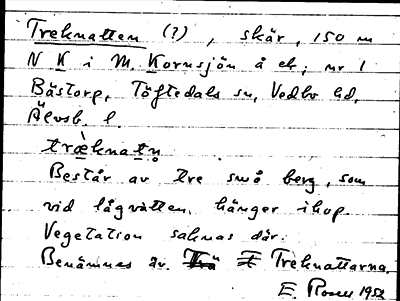 Treknatten (?), skär, 150 m
N K i M. Kornsjön å ek; nr 1
Bästorp, Töftedals sn, Vedbo hd,
Älvsb. l.
træ̀knatn̥
Består av tre små berg, som
vid lågvatten hänger ihop.
Vegetation saknas där.
Benämnes äv. Treknattarna.
E. Rosell 1952